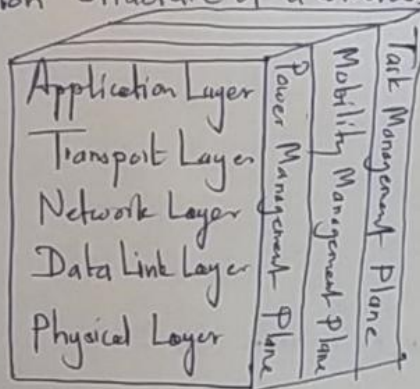 Application Layer
Transport Layer
Network Layer
Data Link Layer
Physical Layer
Power Management Plane
Mobility Management Plane
Task Management Plane